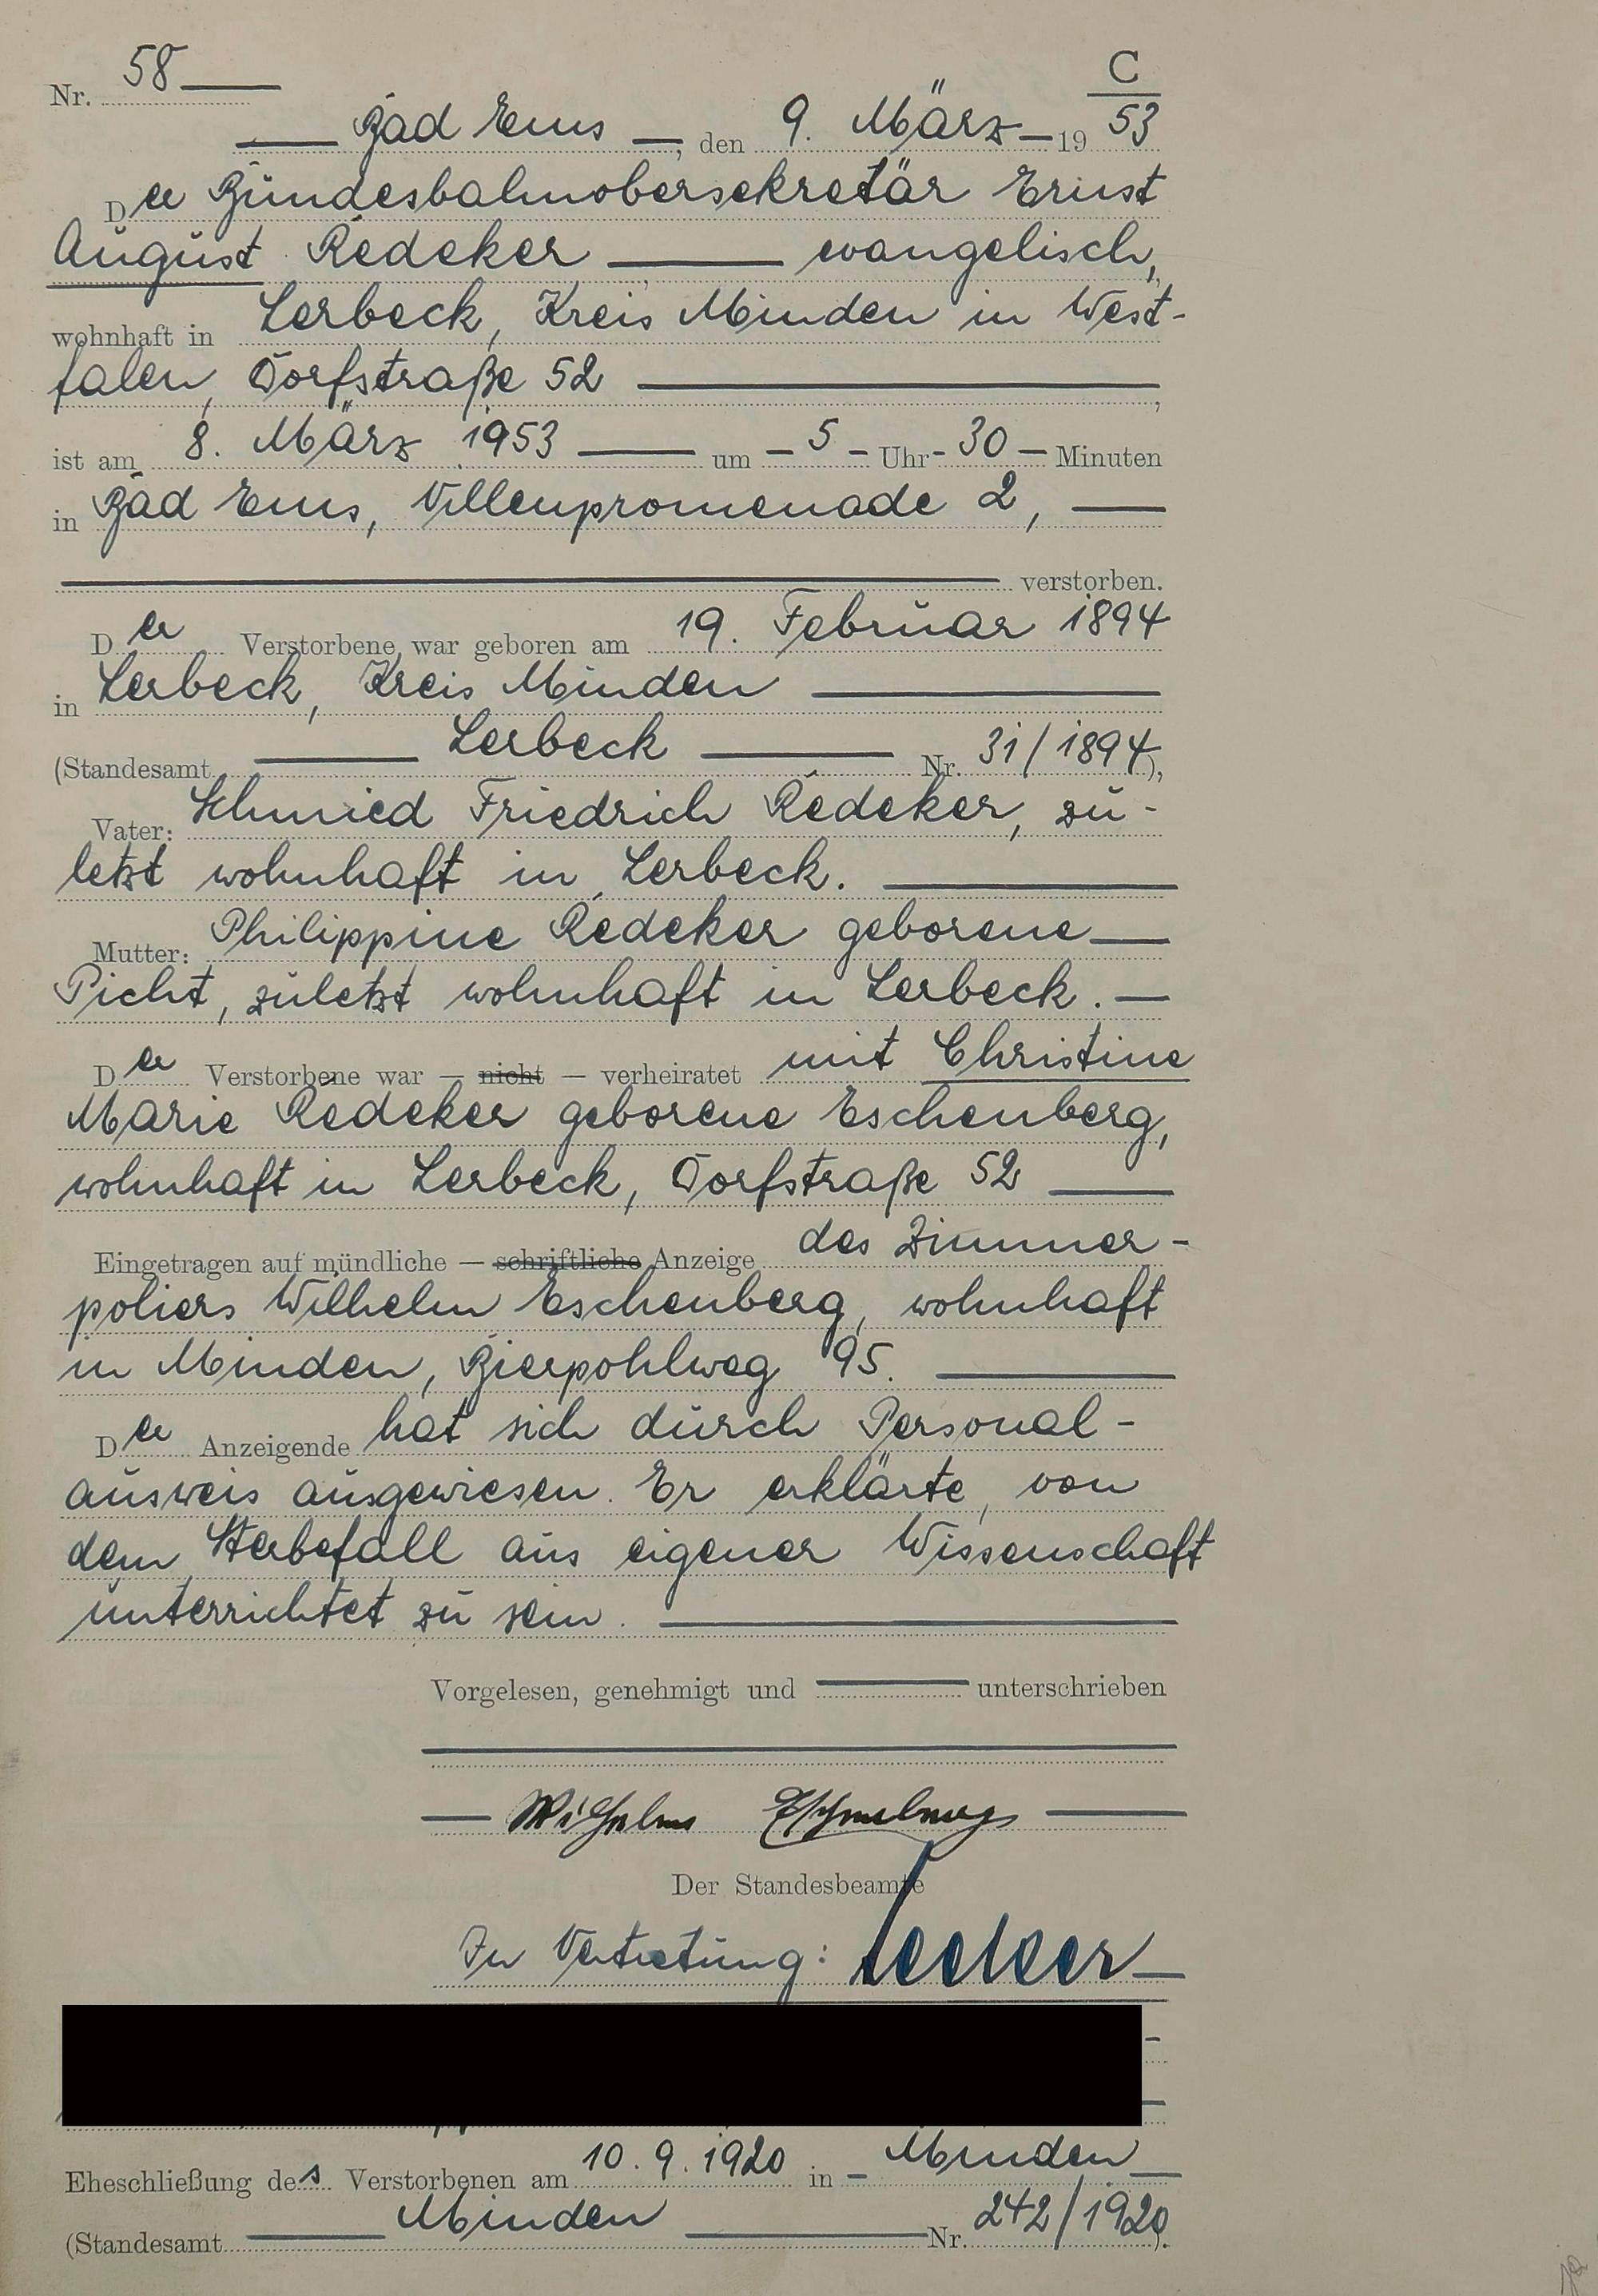 C
Nr. 58
Bad Ems, den 9. März 19 53
Der Bundesbahnobersekretär Ernst
August Redeker evangelisch,
wohnhaft in Lerbeck, Kreis Minden in West-
falen, Dorfstraße 52,
ist am 8. März 1953 um - 5 - Uhr - 30 - Minuten
in Bad Ems, Villenpromenade 2,
verstorben.
Der Verstorbene war geboren am 19. Februar 1894
in Lerbeck, Kreis Minden
(Standesamt Lerbeck Nr. 31/1894),
Vater: Schmied Friedrich Redeker, zu-
letzt wohnhaft in Lerbeck.
Mutter: Philippine Redeker geborene
Picht, zuletzt wohnhaft in Lerbeck.
Der Verstorbene war — nicht — verheiratet mit Christine
Marie Redeker geborene Eschenberg,
wohnhaft in Lerbeck, Dorfstraße 52
Eingetragen auf mündliche — schriftliche Anzeige des Zimmer-
poliers Wilhelm Eschenberg, wohnhaft
in Minden, Bierpohlweg 95.
Der Anzeigende hat sich durch Personal-
ausweis ausgewiesen. Er erklärte, von
dem Sterbefall aus eigener Wissenschaft
unterrichtet zu sein.
Vorgelesen, genehmigt und unterschrieben
Wilhelm Eschenberg
Der Standesbeamte
In Vertretung:
Eheschließung des Verstorbenen am 10.9.1920 in - Minden
(Standesamt Minden Nr. 242/1920).